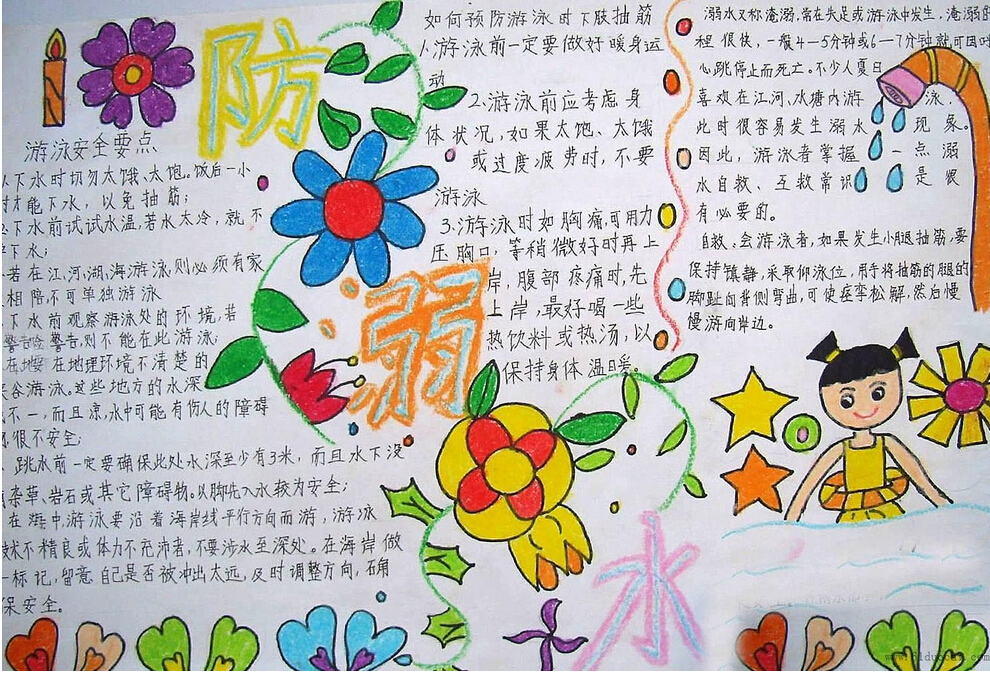 防
弱
水
游泳安全要点
下水时切勿太饿、太饱。饭后一小
时才能下水，以免抽筋；
下水前试试水温，若水太冷，就不
下水；
若在江、河、湖、海游泳，则必须有家
相陪不可单独游泳
下水前观察游泳处的环境，若
警告，则不能在此游泳；
在地理环境不清楚的
谷游泳。这些地方的水深
不一，而且凉，水中可能有伤人的障碍
很不安全；
跳水前一定要确保此处水深至少有3米，而且水下没
杂草、岩石或其它障碍物。以脚先入水较为安全；
在海中游泳要沿着海岸线平行方向而游，游泳
不精良或体力不充沛者，不要涉水至深处。在海岸做
标记，留意自己是否被冲出太远，及时调整方向，确
保安全。
如何预防游泳时下肢抽筋
1.游泳前一定要做好暖身运
动
2.游泳前应考虑身
体状况，如果太饱、太饿
或过度疲劳时，不要
游泳
3.游泳时如胸痛，可用力
压胸口，等稍微好时再上
岸，腹部疼痛时，先
上岸，最好喝一些
热饮料或热汤，以
保持身体温暖。
溺水又称淹溺，常在失足或游泳中发生，淹溺的
程很快，一般4—5分钟或6—7分钟就可因呼
心跳停止而死亡。不少人夏日
喜欢在江河、水塘内游泳.
此时很容易发生溺水现象。
因此，游泳者掌握一点溺
水自救、互救常识是很
有必要的。
自救：会游泳者，如果发生小腿抽筋，要
保持镇静，采取仰泳位，用手将抽筋的腿的
脚趾向背侧弯曲，可使痉挛松解，然后慢
慢游向岸边。